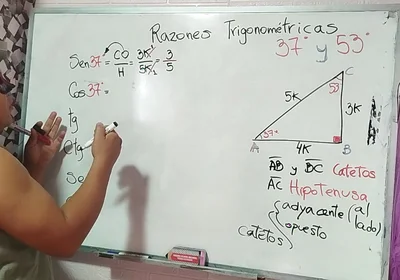 Razones Trigonometricas
37° y 53°
Sen 37° = CO/H = 3K/5K = 3/5
Cos 37° =
tg
ctg
Se
C
53°
5K
3K
37°
A 4K B
AB y BC Catetos
AC Hipotenusa
Catetos { adyacente (al lado)
opuesto